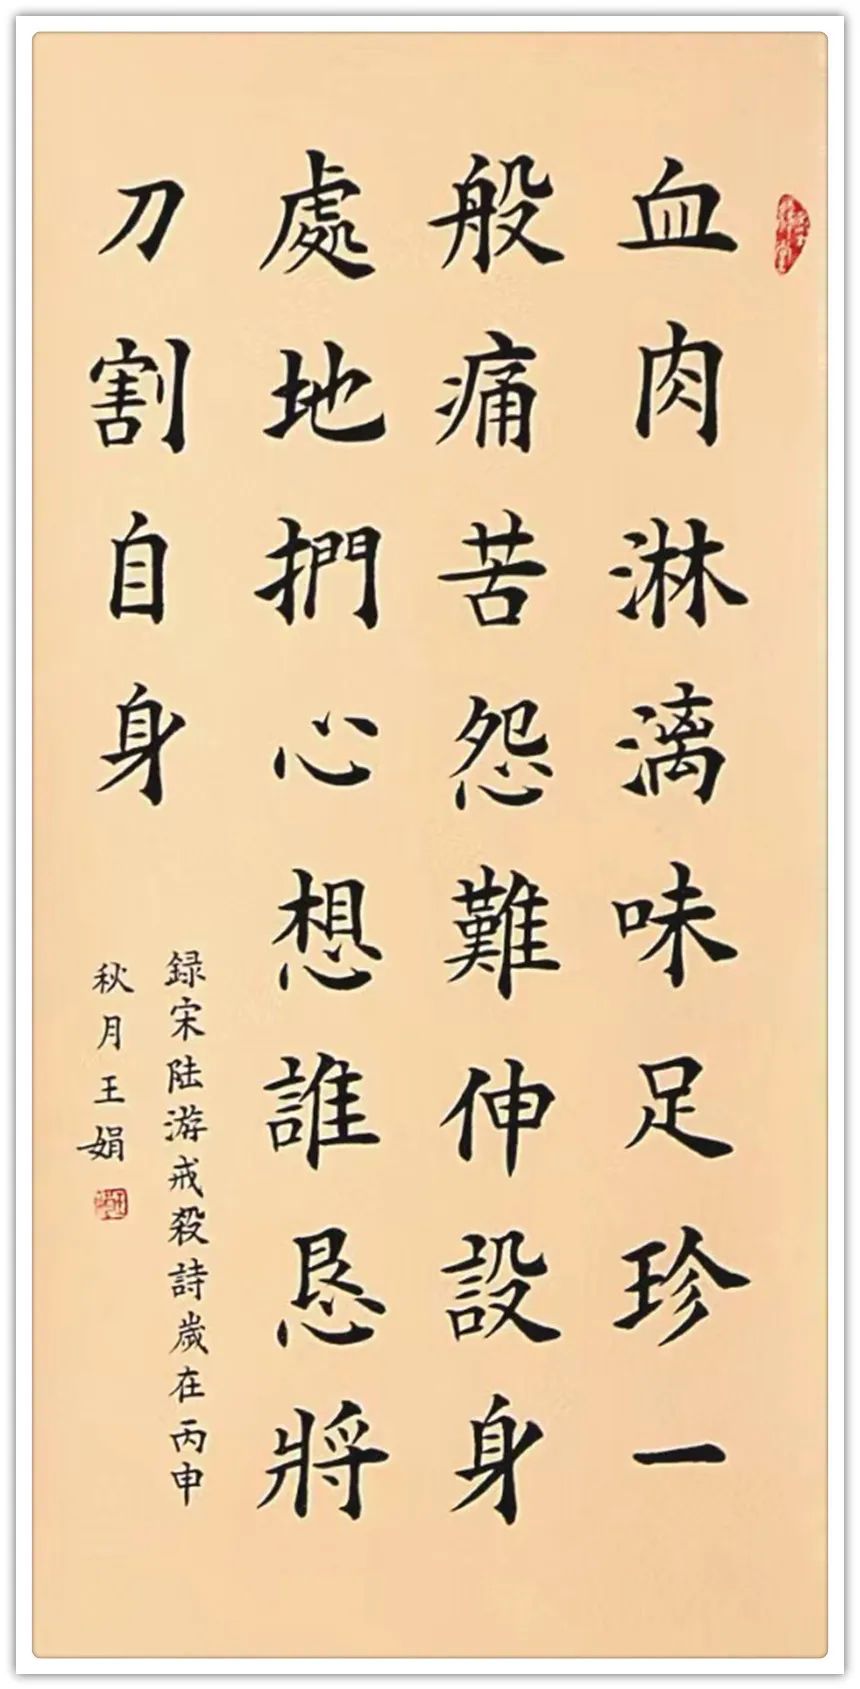 血肉淋漓味足珍一
般痛苦怨難伸設身
處地捫心想誰恳將
刀割自身
録宋陆游戒殺詩歲在丙申
秋月王娟